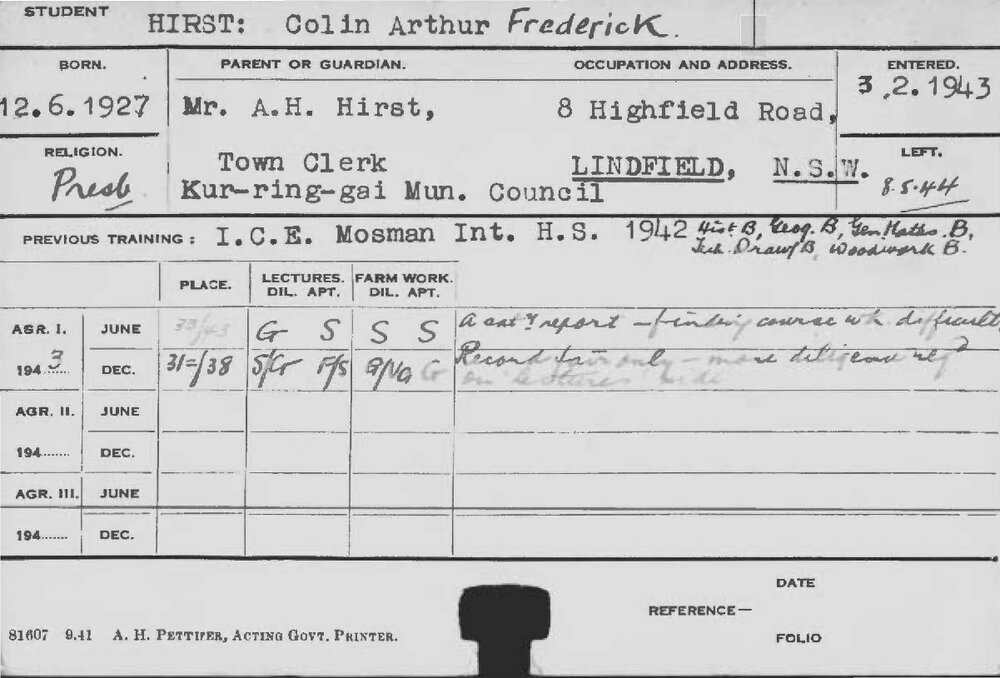 STUDENT
HIRST: Colin Arthur Frederick.
BORN. PARENT OR GUARDIAN. OCCUPATION AND ADDRESS. ENTERED.
12.6.1927 Mr. A.H. Hirst, 8 Highfield Road, 3.2.1943
RELIGION. Town Clerk LINDFIELD, N.S.W. LEFT.
Presb Kur-ring-gai Mun. Council 8.5.44
PREVIOUS TRAINING: I.C.E. Mosman Int. H.S. 1942 Hist B, Geog. B, Gen Maths. B,
Tech. Draw'g B, Woodwork B.
PLACE. LECTURES. FARM WORK.
DIL. APT. DIL. APT.
AGR. I. JUNE 33/43 G S S S A sat'y report - finding course difficult
1943 DEC. 31=/38 S/G F/S G/VG G Record fair only - more diligence req'd
on lectures side
AGR. II. JUNE
194........ DEC.
AGR. III. JUNE
194....... DEC.
DATE
REFERENCE—
81607 9.41 A. H. PETTIFER, ACTING GOVT. PRINTER. FOLIO